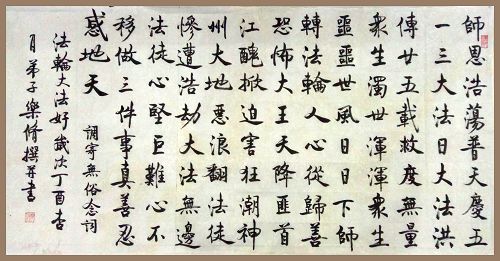 師恩浩蕩普天慶五
一三大法日大法洪
傳廿五載救度無量
衆生濁世渾渾衆生
噩噩世風日日下師
轉法輪人心從歸善
恐怖大王天降匪首
江醜掀迫害狂潮神
州大地惡浪翻法徒
慘遭浩劫大法無邊
法徒心堅巨難心不
移做三件事真善忍
感地天
調寄無俗念詞
法輪大法好歲次丁酉杏
月弟子樂脩撰并書